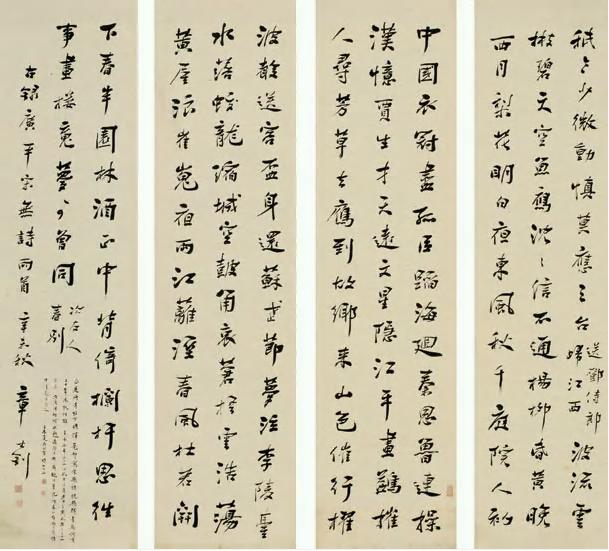 中國衣冠盡孤臣蹈海廻秦思魯連操
漢憶賈生才天遠文星隱江平畫鷁摧
人尋芳草去鴈到故鄉來山色催行櫂
波聲送客盃身還蘇武節夢泣李陵臺
水落蛟龍縮城空鼓角哀蒼梧雲浩蕩
黃屋浪崔嵬夜雨江蘺溼春風杜若開
秪今少微動慎莫應三台 送鄧侍郎歸江西 波流雲
散碧天空魚鴈沈沈信不通楊柳昏黃晚
西月梨花明白夜東風秋千庭院人初
下春半園林酒正中背倚欄杆思往
事畫樓魂夢可曾同 次友人春別
右錄廣平宋無詩兩首 辛未秋 章士釗